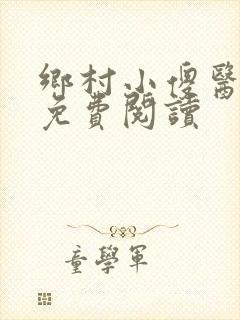 鄉村小傻醫
免費閱讀
童學軍